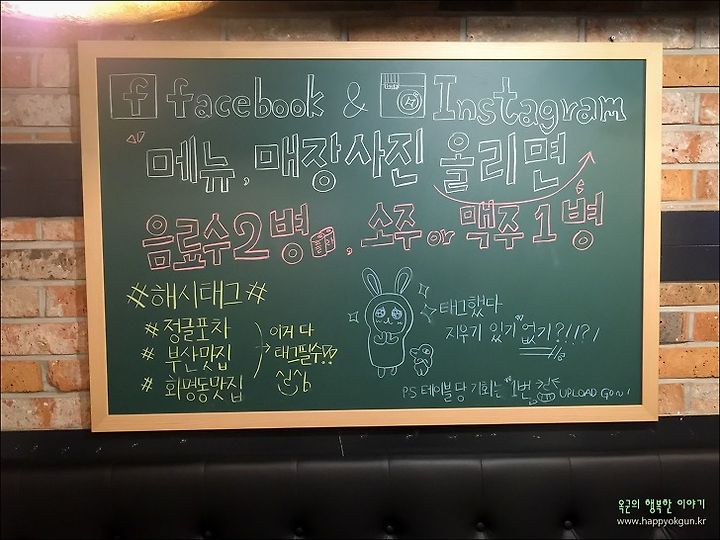 f facebook & Instagram
메뉴, 매장사진 올리면
음료수2병, 소주 or 맥주 1병
#해시태그#
#정글포차
# 부산맛집
# 화명동맛집
이거 다
태그필수!!
태그했다
지우기 있기 없기?!!?!
PS 테이블당 기회는 "1번
UPLOAD GO~!
옥군의 행복한 이야기
www.happyokgun.kr